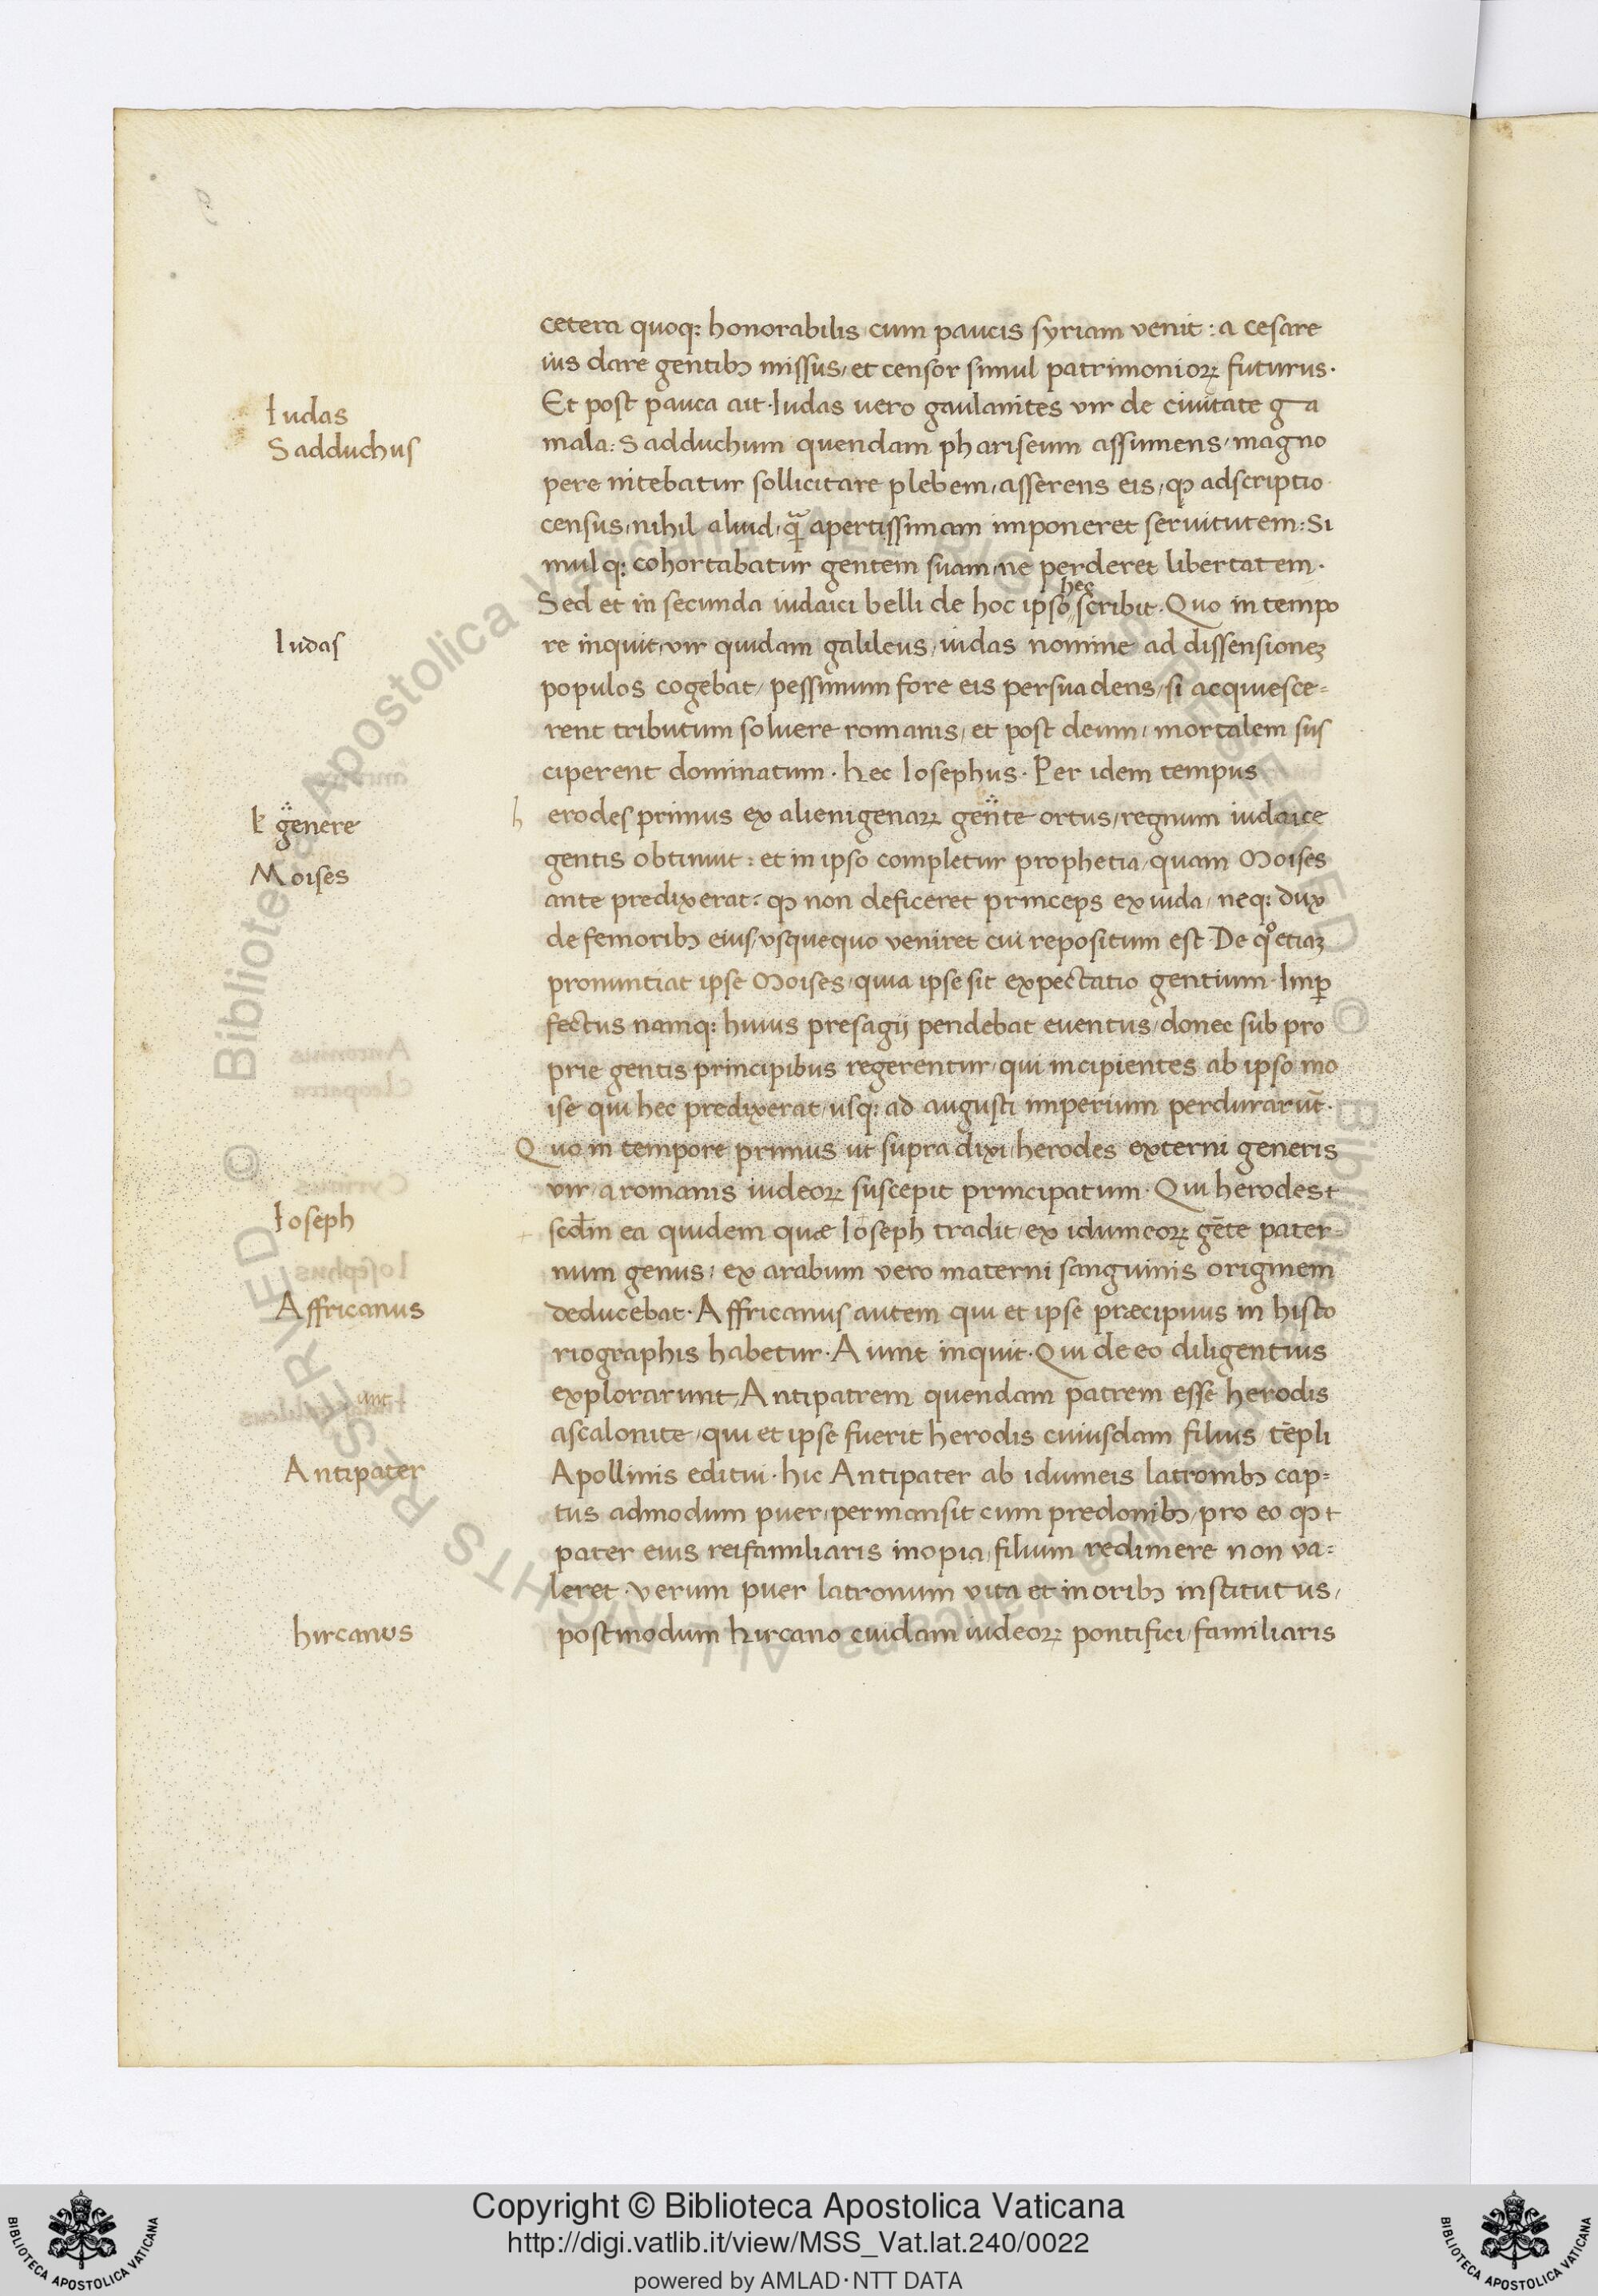 cetera quoq: honorabilis cum paucis syriam venit: a cesare
ius dare gentibꝫ missus, et censor simul patrimonioꝝ futurus.
Iudas
Et post pauca ait. Iudas uero gaulanites vir de ciuitate ga
Sadduchus
mala: Sadduchum quendam phariseum assumens, magno
pere nitebatur sollicitare plebem, asserens eis, ꝙ adscriptio
census, nihil aliud, qᷓ apertissimam imponeret seruitutem: Si
mulq: cohortabatur gentem suam, ne perderet libertatem.
Sed et in secunda iudaici belli de hoc ipso hec scribit. Quo in tempo
Iudas
re inquit, vir quidam galileus, iudas nomine ad dissensioneꝫ
populos cogebat, pessimum fore eis persuadens, si acquiesce=
rent tributum soluere romanis, et post deum, mortalem sus
ciperent dominatum. hec Iosephus. Per idem tempus
ł genere
h erodes primus ex alienigenaꝝ gente ortus, regnum iudaice
gentis obtinuit: et in ipso completur prophetia, quam Moises
Moises
ante predixerat: ꝙ non deficeret princeps ex iuda, neq: dux
de femoribꝫ eius, vsquequo veniret cui repositum est. De qº etiaꝫ
pronuntiat ipse Moises, quia ipse sit expectatio gentium. Imꝑ
fectus namq: huius presagij pendebat euentus, donec sub pro
prie gentis principibus regerentur, qui incipientes ab ipso mo
ise qui hec predixerat, usq: ad augusti imperium perdurarūt.
Quo in tempore primus ut supra dixi, herodes externi generis
vir, a romanis iudeoꝝ suscepit principatum. Qui herodes
Ioseph
scd̄m ea quidem quæ Ioseph tradit, ex idumeoꝝ gēte pater=
num genus, ex arabum vero materni sanguinis originem
Affricanus
deducebat. Affricanus autem qui et ipse præcipuus in histo
riographis habetur. Aiunt inquit. Qui de eo diligentius
explorarunt, Antipatrem quendam patrem esse herodis
ascalonite, qui et ipse fuerit herodis cuiusdam filius tēpli
Antipater
Apollinis editui. hic Antipater ab idumeis latronibꝫ cap=
tus admodum puer, permansit cum predonibꝫ, pro eo ꝙ
pater eius reifamiliaris inopia, filium redimere non va=
leret. verum puer latronum vita et moribꝫ institutus,
hircanus
postmodum hircano cuidam iudeoꝝ pontifici, familiaris
Copyright © Biblioteca Apostolica Vaticana
http://digi.vatlib.it/view/MSS_Vat.lat.240/0022
powered by AMLAD·NTT DATA
BIBLIOTECA APOSTOLICA VATICANA
BIBLIOTECA APOSTOLICA VATICANA